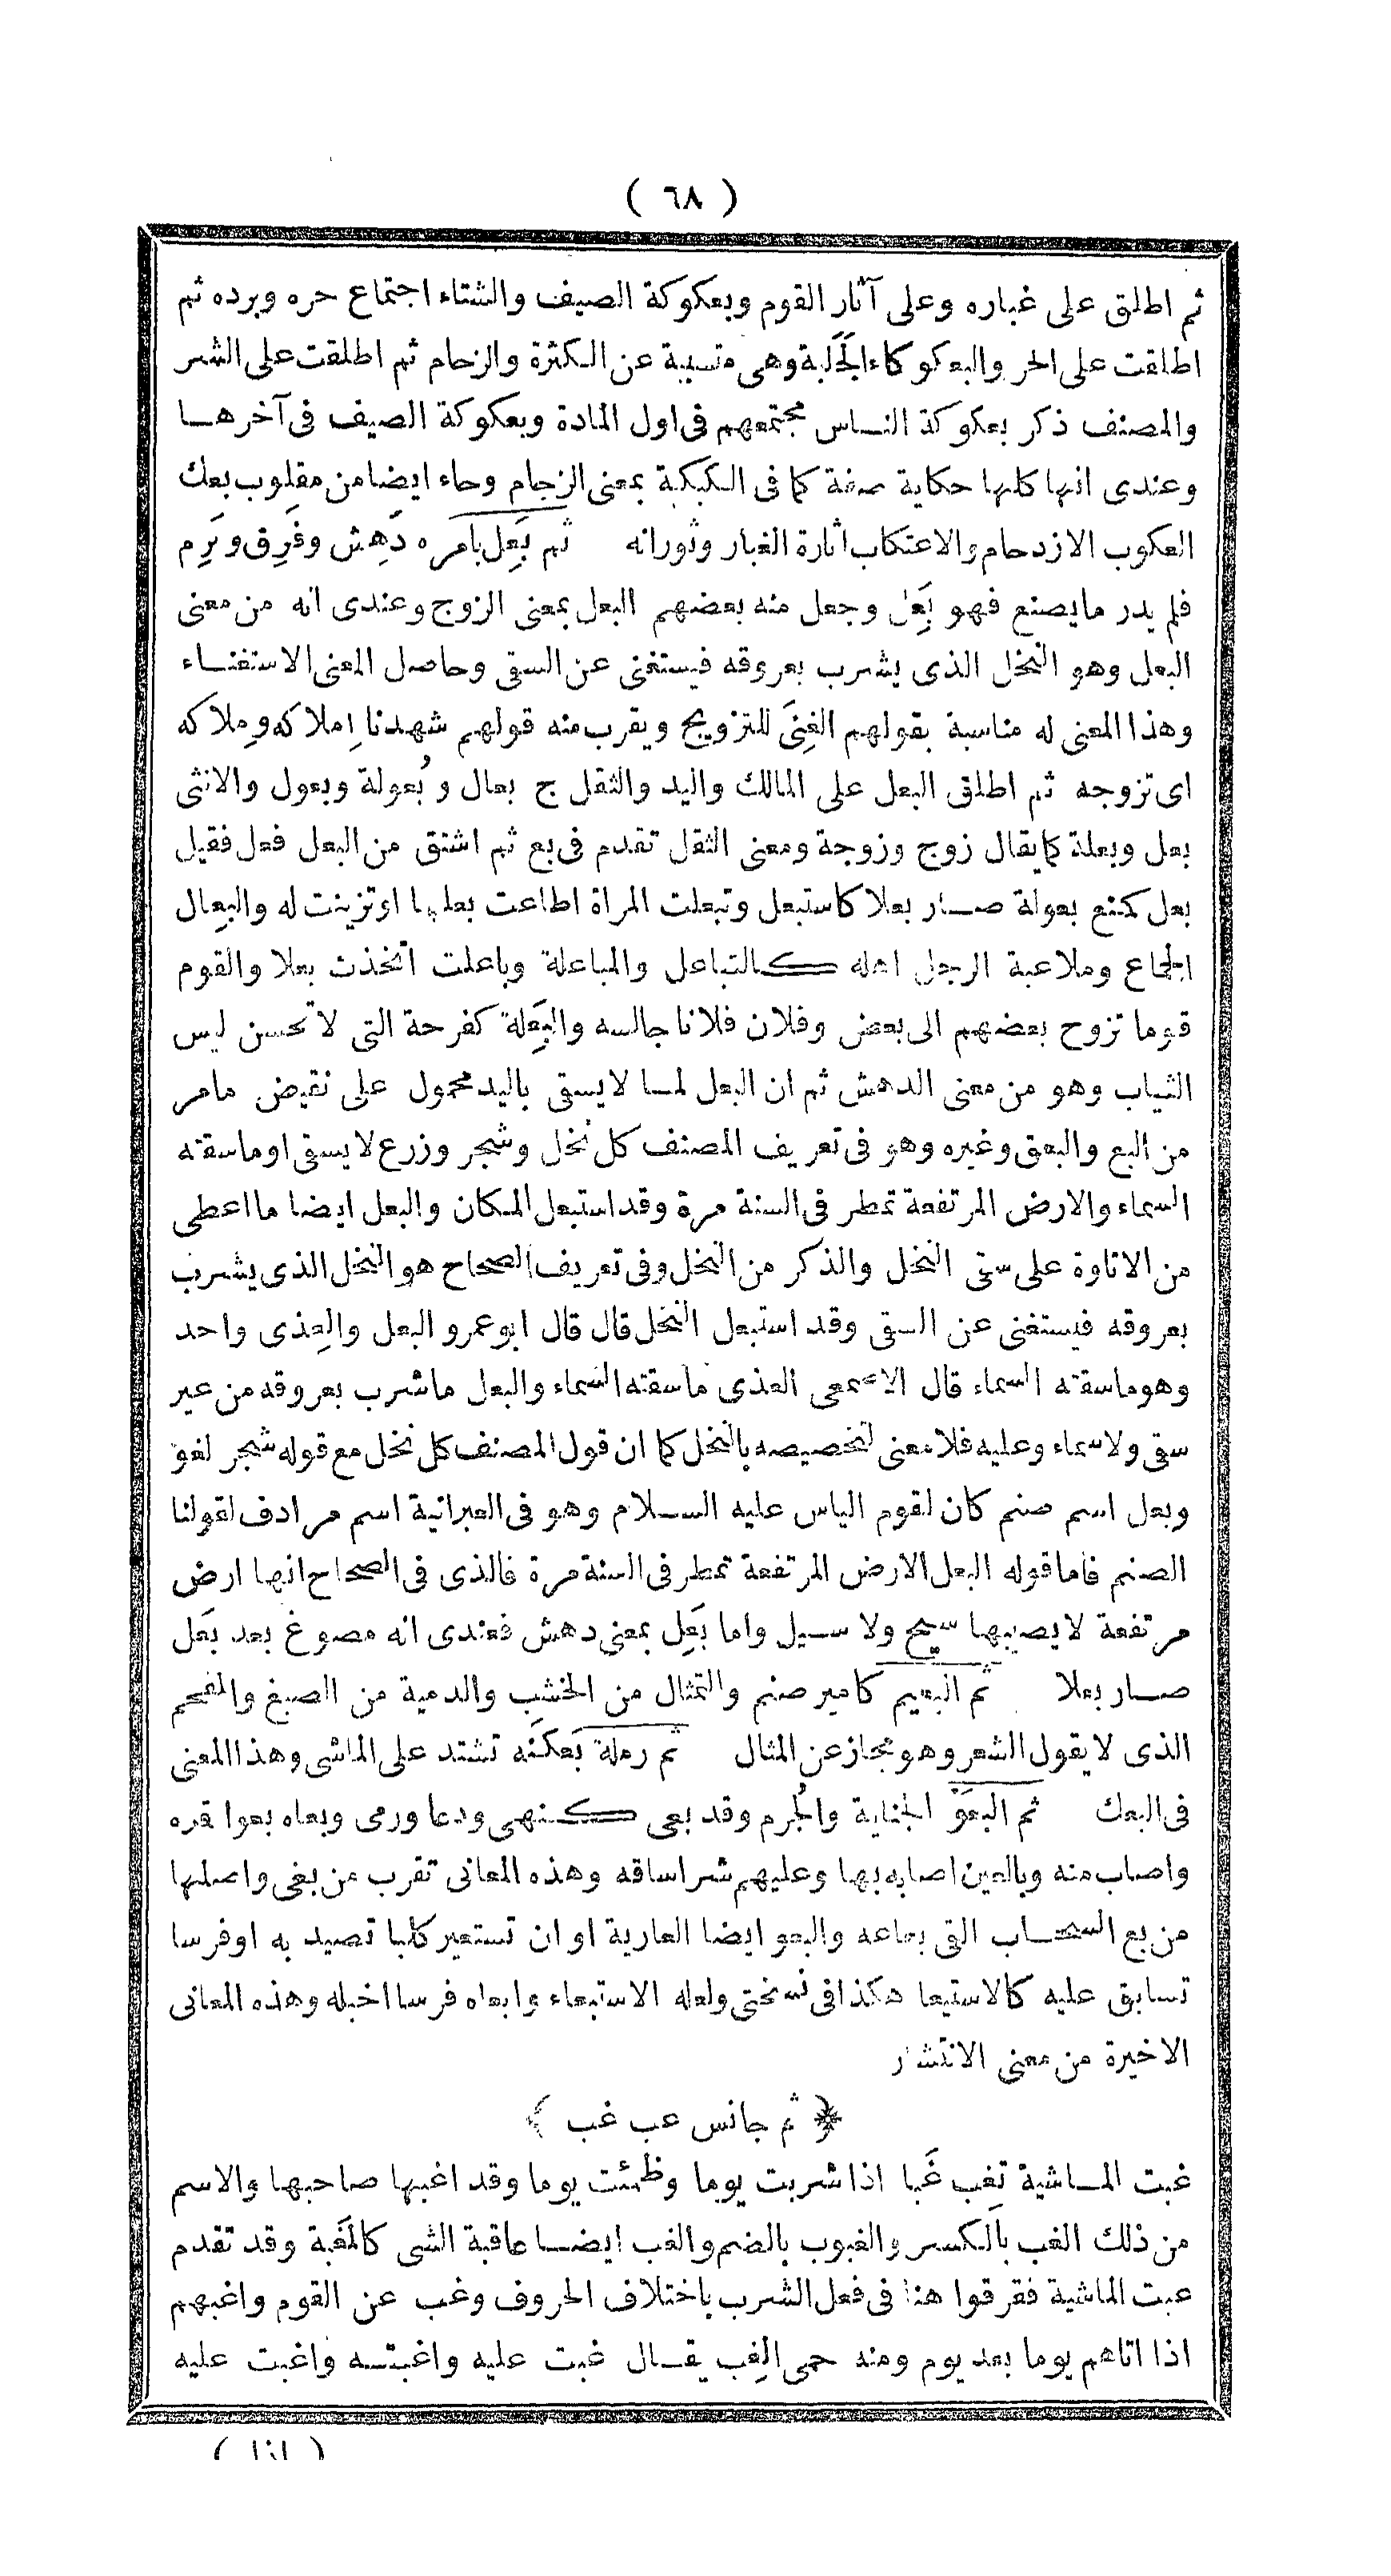 ( ٦٨ )
ثم اطلق على غباره وعلى آثار القوم وبعكوكة الصيف والشتاء اجتماع حره وبرده ثم
اطلقت على الحر والبعكوكاء الجَلَبة وهى متسببة عن الكثرة والزحام ثم اطلقت على الشر
والمصنف ذكر بعكوكة النـاس مجتمعهم فى اول المادة وبعكوكة الصيف فى آخرهـا
وعندى انها كلها حكاية صفة كما فى الكبكبة بمعنى الزحام وجاء ايضا من مقلوب بعك
العكوب الازدحام والاعتكاب اثارة الغبار وثورانه ثم بَعِل بامره دَهِش وفرِق وبَرِم
فلم يدر ما يصنع فهو بَعِل وجعل منه بعضهم البعل بمعنى الزوج وعندى انه من معنى
البعل وهو النخل الذى يشرب بعروقه فيستغنى عن السقى وحاصل المعنى الاستغنـاء
وهذا المعنى له مناسبة بقولهم الغِنَى للتزويج ويقرب منه قولهم شهدنا اِملاكه ومِلاكه
اى تزوجه ثم اطلق البعل على المالك واليد والثقل ج بعال وبُعولة وبعول والانثى
بعل وبعلة كما يقال زوج وزوجة ومعنى الثقل تقدم فى بع ثم اشتق من البعل فعل فقيل
بعل كمنع بعولة صـار بعلا كاستبعل وتبعلت المراة اطاعت بعلها او تزينت له والبِعال
الجماع وملاعبة الرجل اهله كالتباعل والمباعلة وباعلت اتخذت بعلا والقوم
قوما تزوج بعضهم الى بعض وفلان فلانا جالسه والبَعِلة كفرحة التى لا تحسن لبس
الثياب وهو من معنى الدهش ثم ان البعل لمـا لا يسقى باليد محمول على نقيض ما مر
من البع والبعق وغيره وهو فى تعريف المصنف كل نخل وشجر وزرع لا يسقى او ما سقته
السماء والارض المرتفعة تمطر فى السنة مرة وقد استبعل المكان والبعل ايضا ما اعطى
من الاتاوة على سقى النخل والذكر من النخل وفى تعريف الصحاح هو النخل الذى يشرب
بعروقه فيستغنى عن السقى وقد استبعل النخل قال قال ابو عمرو البعل والعِذى واحد
وهو ما سقته السماء قال الاصمعى العذى ما سقته السماء والبعل ما شرب بعروقه من غير
سقى ولا سماء وعليه فلا معنى لتخصيصه بالنخل كما ان قول المصنف كل نخل مع قوله شجر لغو
وبعل اسم صنم كان لقوم الياس عليه السـلام وهو فى العبرانية اسم مرادف لقولنا
الصنم فاما قوله البعل الارض المرتفعة تمطر فى السنة مرة فالذى فى الصحاح انها ارض
مرتفعة لا يصيبها سيح ولا سـيل واما بَعِل بمعنى دهش فعندى انه مصوغ بعد بَعَل
صـار بعلا ثم البعيم كامير صنم والتمثال من الخشب والدمية من الصبغ والمفحم
الذى لا يقول الشعر وهو مجاز عن المثال ثم رملة بَعكنة تشتد على الماشى وهذا المعنى
فى البعك ثم البَعو الجناية والجُرم وقد بعى كنهى ودعا ورمى وبعاه بعوا قره
واصاب منه وبالعين اصابه بها وعليهم شرا ساقه وهذه المعانى تقرب من بغى واصلها
من بع السحـاب القى بعاعه والبعو ايضا العارية او ان تستعير كلبا تصيد به او فرسا
تسابق عليه كالاستيعا هكذا فى نسختى ولعله الاستبعاء وابعاه فرسا اخبله وهذه المعانى
الاخيرة من معنى الانتشار
﴿ ثم جانس عب غب ﴾
غبت المـاشية تَغِب غَبا اذا شربت يوما وظمئت يوما وقد اغبها صاحبها والاسم
من ذلك الغب بالكسر والغبوب بالضم والغب ايضـا عاقبة الشى كالمَغَبة وقد تقدم
عبت الماشية ففرقوا هنا فى فعل الشرب باختلاف الحروف وغب عن القوم واغبهم
اذا اتاهم يوما بعد يوم ومنه حمى الغِب يقـال غبت عليه واغبتـه واغبت عليه
( اذا )